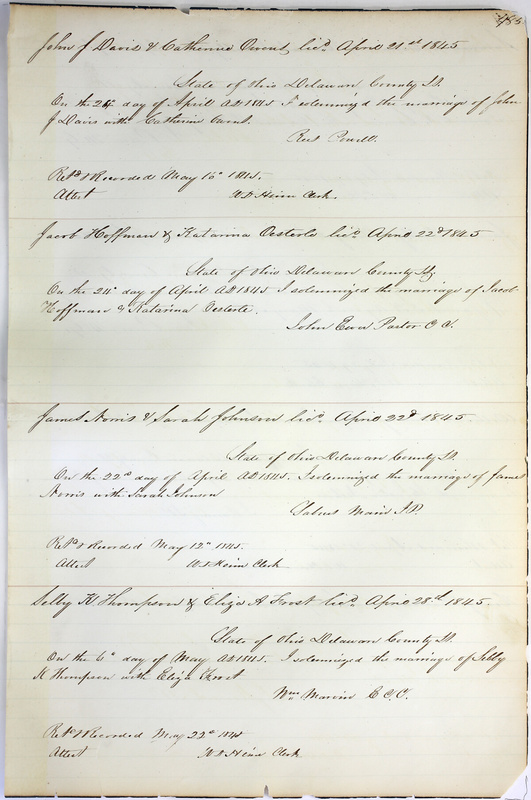 John J Davis & Catherine licd. April 21st 1845
State of Ohio Delaware County St.
On the 24th day of April AD 1845 I solemnized the marriage of John
J Davis with Catherine
Retd & Recorded May 16th 1845.
Attest W. D. Heim Clerk.
Jacob Hoffman & Katarina Oesterle licd. April 22d 1845
State of Ohio Delaware County St
On the 24th day of April AD 1845 I solemnized the marriage of Jacob
Hoffman & Katarina Oesterle.
John Pastor
James Norris & Sarah Johnson licd. April 22d 1845.
State of Ohio Delaware County St.
On the 22nd day of April AD 1845. I solemnized the marriage of James
Norris with Sarah Johnson
Main J.P.
Retd & Recorded May 12th 1845.
Attest W. D. Heim Clerk
Selby K Thompson & Eliza A Frost licd. April 28th 1845.
State of Ohio Delaware County St.
On the 6th day of May AD 1845. I solemnized the marriage of Selby
K Thompson with Eliza Frost
Wm. Marvin
Retd & Recorded May 22d 1845
Attest W. D. Heim Clerk